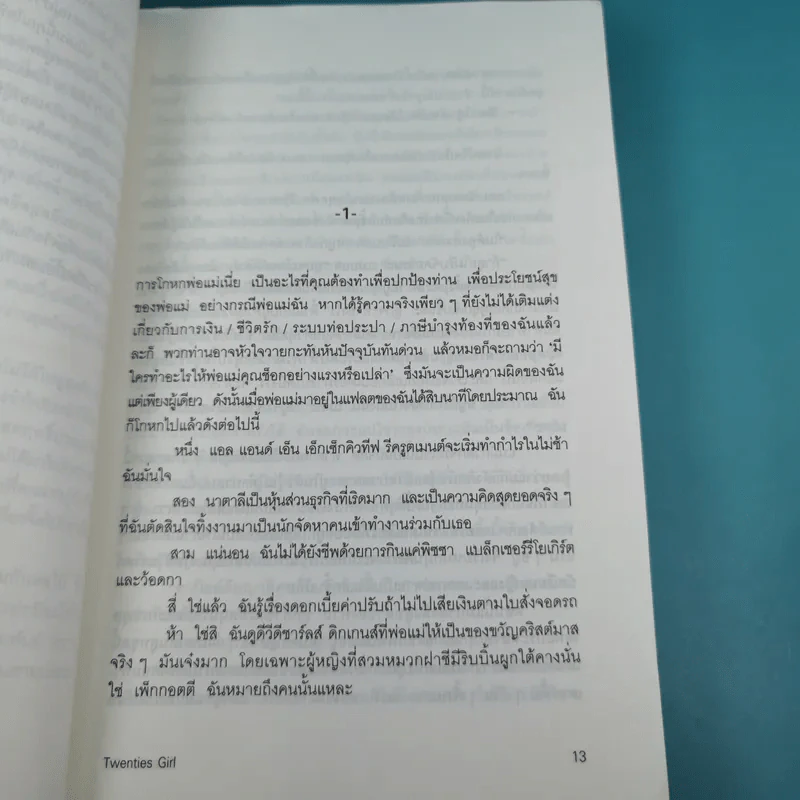 -1-
การโกหกพ่อแม่เนี่ย เป็นอะไรที่คุณต้องทำเพื่อปกป้องท่าน เพื่อประโยชน์สุข
ของพ่อแม่ อย่างกรณีพ่อแม่ฉัน หากได้รู้ความจริงเพียว ๆ ที่ยังไม่ได้เติมแต่ง
เกี่ยวกับการเงิน / ชีวิตรัก / ระบบท่อประปา / ภาษีบำรุงท้องที่ของฉันแล้ว
ละก็ พวกท่านอาจหัวใจวายกะทันหันปัจจุบันทันด่วน แล้วหมอก็จะถามว่า ‘มี
ใครทำอะไรให้พ่อแม่คุณช็อกอย่างแรงหรือเปล่า’ ซึ่งมันจะเป็นความผิดของฉัน
แต่เพียงผู้เดียว ดังนั้นเมื่อพ่อแม่มาอยู่ในแฟลตของฉันได้สิบนาทีโดยประมาณ ฉัน
ก็โกหกไปแล้วดังต่อไปนี้
หนึ่ง แอล แอนด์ เอ็น เอ็กเซ็กคิวทีฟ รีครูตเมนต์จะเริ่มทำกำไรในไม่ช้า
ฉันมั่นใจ
สอง นาตาลีเป็นหุ้นส่วนธุรกิจที่เริดมาก และเป็นความคิดสุดยอดจริง ๆ
ที่ฉันตัดสินใจทิ้งงานมาเป็นนักจัดหาคนเข้าทำงานร่วมกับเธอ
สาม แน่นอน ฉันไม่ได้ยังชีพด้วยการกินแค่พิซซา แบล็กเชอร์รี่โยเกิร์ต
และว้อดกา
สี่ ใช่แล้ว ฉันรู้เรื่องดอกเบี้ยค่าปรับถ้าไม่ไปเสียเงินตามใบสั่งจอดรถ
ห้า ใช่สิ ฉันดูดีวีดีชาร์ลส์ ดิกเกนส์ที่พ่อแม่ให้เป็นของขวัญคริสต์มาส
จริง ๆ มันเจ๋งมาก โดยเฉพาะผู้หญิงที่สวมหมวกฝาชีมีริบบิ้นผูกใต้คางนั่น
ใช่ เพ็กกอตตี ฉันหมายถึงคนนั้นแหละ
Twenties Girl
13